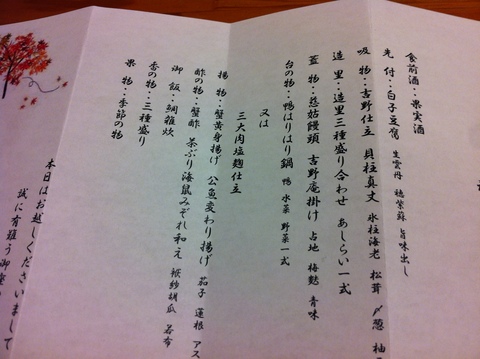 食前酒・・果実酒
先　付・・白子豆腐　生雲丹　穂紫蘇　旨味出し
吸　物・・吉野仕立　貝柱真丈　氷柱海老　松茸　〆葱　柚
造　里・・造里三種盛り合わせ　あしらい一式
蓋　物・・慈姑饅頭　吉野庵掛け　占地　梅麩　青味
台の物・・鴨はりはり鍋　鴨　水菜　野菜一式
又は
三大肉塩麹仕立
揚　物・・蟹黄身揚げ　公魚変わり揚げ　茄子　蓮根　アス
酢の物・・蟹酢　茶ぶり海鼠みぞれ和え　袱紗胡瓜　若布
御　飯・・鯛雑炊
香の物・・三種盛り
果　物・・季節の物
本日はお越しくださいまして
誠に有難う御座